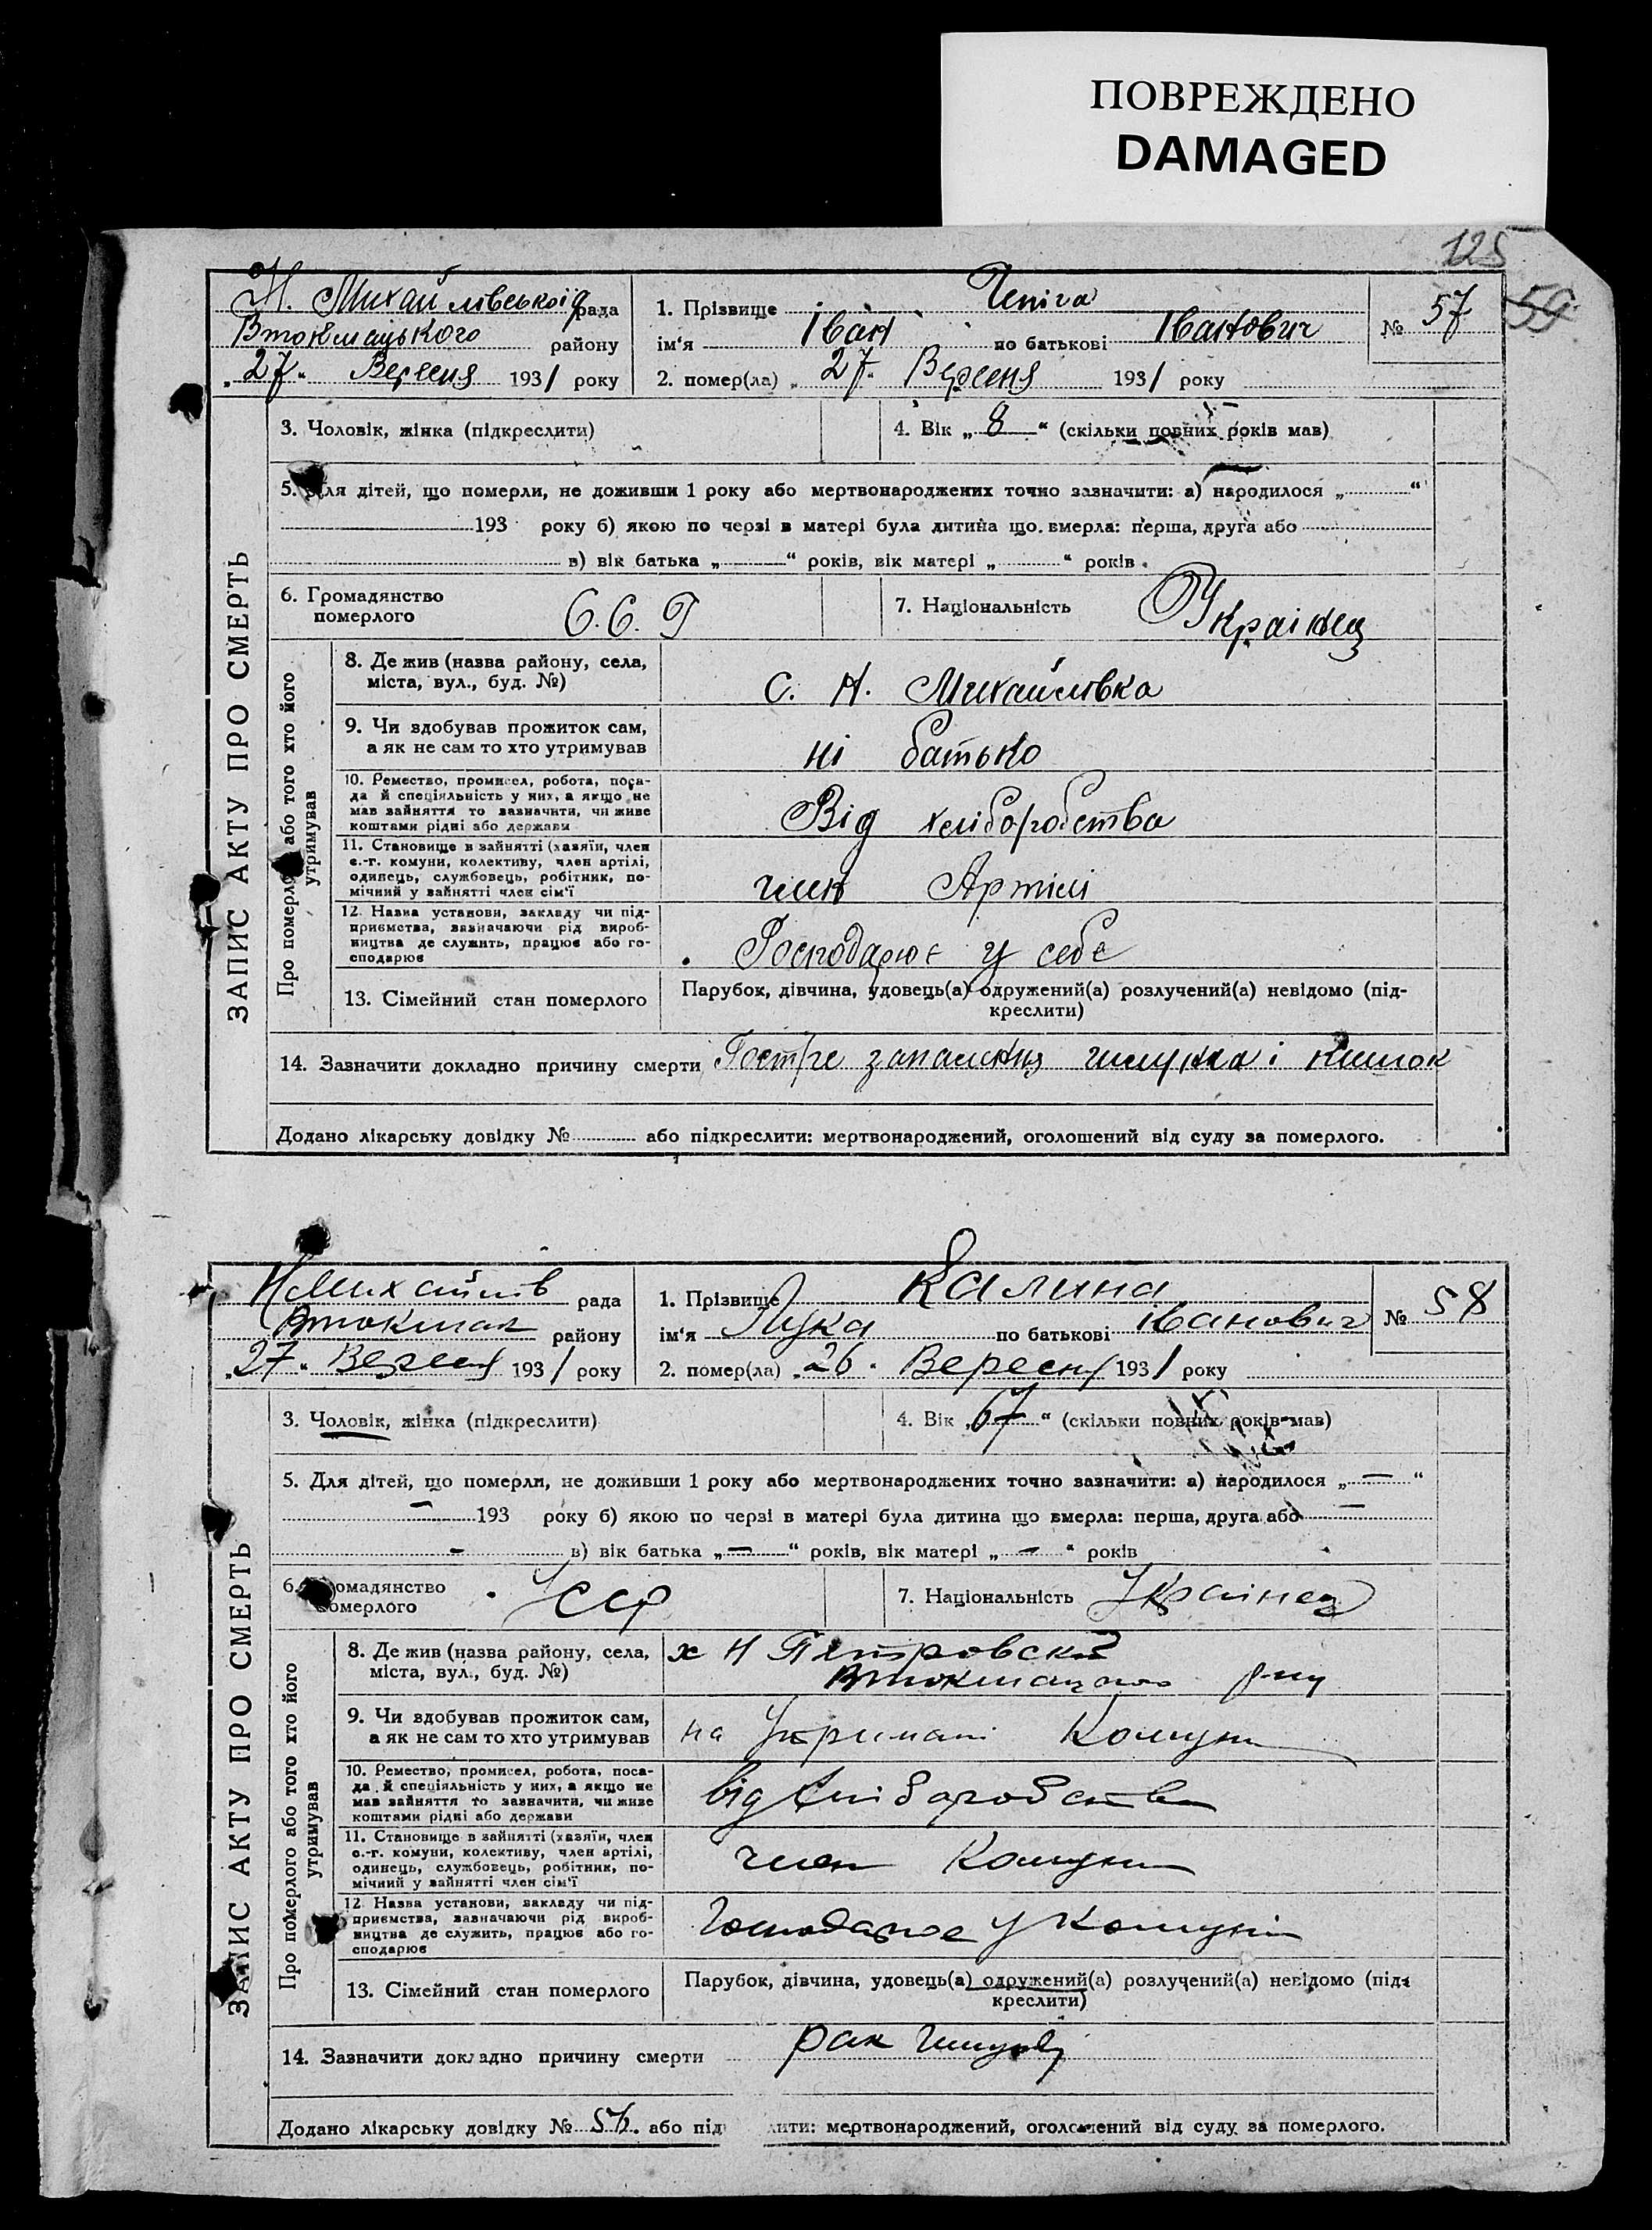 ПОВРЕЖДЕНО
DAMAGED
125
59
Н. Михайлівської рада
Втокмацького району
„27“ Вересня 1931 року
1. Прізвище Чепіга
ім'я Іван по батькові Іванович
2. помер(ла) „27“ Вересня 1931 року
№ 57
3. Чоловік, жінка (підкреслити)
4. Вік „8“ (скільки повних років мав)
5. Для дітей, що померли, не доживши 1 року або мертвонароджених точно зазначити: а) народилося „ “
193 року б) якою по черзі в матері була дитина що вмерла: перша, друга або
в) вік батька „ “ років, вік матері „ “ років
6. Громадянство
померлого
7. Національність Українец
ЗАПИС АКТУ ПРО СМЕРТЬ
Про померлого або того хто його
утримував
8. Де жив (назва району, села,
міста, вул., буд. №)
с. Н. Михайлівка
9. Чи здобував прожиток сам,
а як не сам то хто утримував
ні батько
10. Ремество, промисел, робота, поса-
да й спеціяльність у них, а якщо не
мав зайняття то зазначити, чи живе
коштами рідні або держави
Від хліборобства
11. Становище в зайнятті (хазяїн, член
с.-г. комуни, колективу, член артілі,
одинець, службовець, робітник, по-
мічний у зайнятті член сім'ї
член Артілі
12. Назва установи, закладу чи під-
приємства, зазначаючи рід вироб-
ництва де служить, працює або го-
сподарює
Господарює у себе
13. Сімейний стан померлого
Парубок, дівчина, удовець(а) одружений(а) розлучений(а) невідомо (під-
креслити)
14. Зазначити докладно причину смерти Гостре запалення шлунка і кишок
Додано лікарську довідку № або підкреслити: мертвонароджений, оголошений від суду за померлого.
НМихайлів рада
Втокмак району
„27“ Вересня 1931 року
1. Прізвище Калина
ім'я Лука по батькові Іванович
2. помер(ла) „26“ Вересня 1931 року
№ 58
3. Чоловік, жінка (підкреслити)
4. Вік „67“ (скільки повних років мав)
5. Для дітей, що померли, не доживши 1 року або мертвонароджених точно зазначити: а) народилося „—“
— 193 року б) якою по черзі в матері була дитина що вмерла: перша, друга або —
— в) вік батька „—“ років, вік матері „—“ років
6. Громадянство
померлого
УССР
7. Національність Українец
ЗАПИС АКТУ ПРО СМЕРТЬ
Про померлого або того хто його
утримував
8. Де жив (назва району, села,
міста, вул., буд. №)
х Н Петровский
Втокмацького р-ну
9. Чи здобував прожиток сам,
а як не сам то хто утримував
на Утримані Комуни
10. Ремество, промисел, робота, поса-
да й спеціяльність у них, а якщо не
мав зайняття то зазначити, чи живе
коштами рідні або держави
від хліборобства
11. Становище в зайнятті (хазяїн, член
с.-г. комуни, колективу, член артілі,
одинець, службовець, робітник, по-
мічний у зайнятті член сім'ї
член Комуни
12. Назва установи, закладу чи під-
приємства, зазначаючи рід вироб-
ництва де служить, працює або го-
сподарює
Господарює у Комуні
13. Сімейний стан померлого
Парубок, дівчина, удовець(а) одружений(а) розлучений(а) невідомо (під-
креслити)
14. Зазначити докладно причину смерти рак
Додано лікарську довідку № або під лити: мертвонароджений, оголошений від суду за померлого.